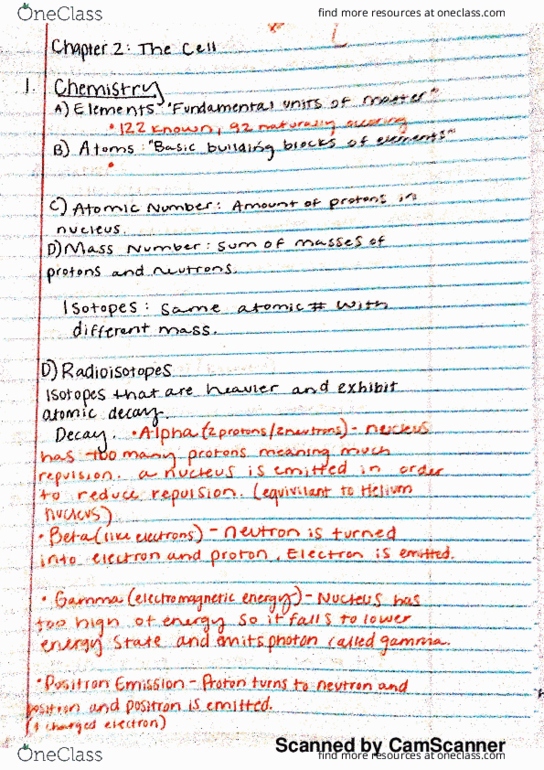 OneClass
find more resources at oneclass.com
Chapter 2: The Cell
1. Chemistry
A) Elements "Fundamental units of matter"
• 122 known, 92 naturally occuring
B) Atoms: "Basic building blocks of elements"
•
C) Atomic Number: Amount of protons in
nucleus.
D) Mass Number: sum of masses of
protons and neutrons.
Isotopes: same atomic # with
different mass.
D) Radioisotopes
Isotopes that are heavier and exhibit
atomic decay.
Decay. • Alpha (2 protons/2 neutrons) - nucleus
has too many protons meaning much
repulsion. a nucleus is emitted in order
to reduce repulsion. (equivilant to Helium
nucleus)
• Beta (like electrons) - neutron is turned
into electron and proton. Electron is emitted.
• Gamma (electromagnetic energy) - Nucleus has
too high of energy so it falls to lower
energy state and emits photon called gamma.
• Positron Emission - Proton turns to neutron and
positron and positron is emitted.
(+ charged electron)
Scanned by CamScanner
OneClass
find more resources at oneclass.com